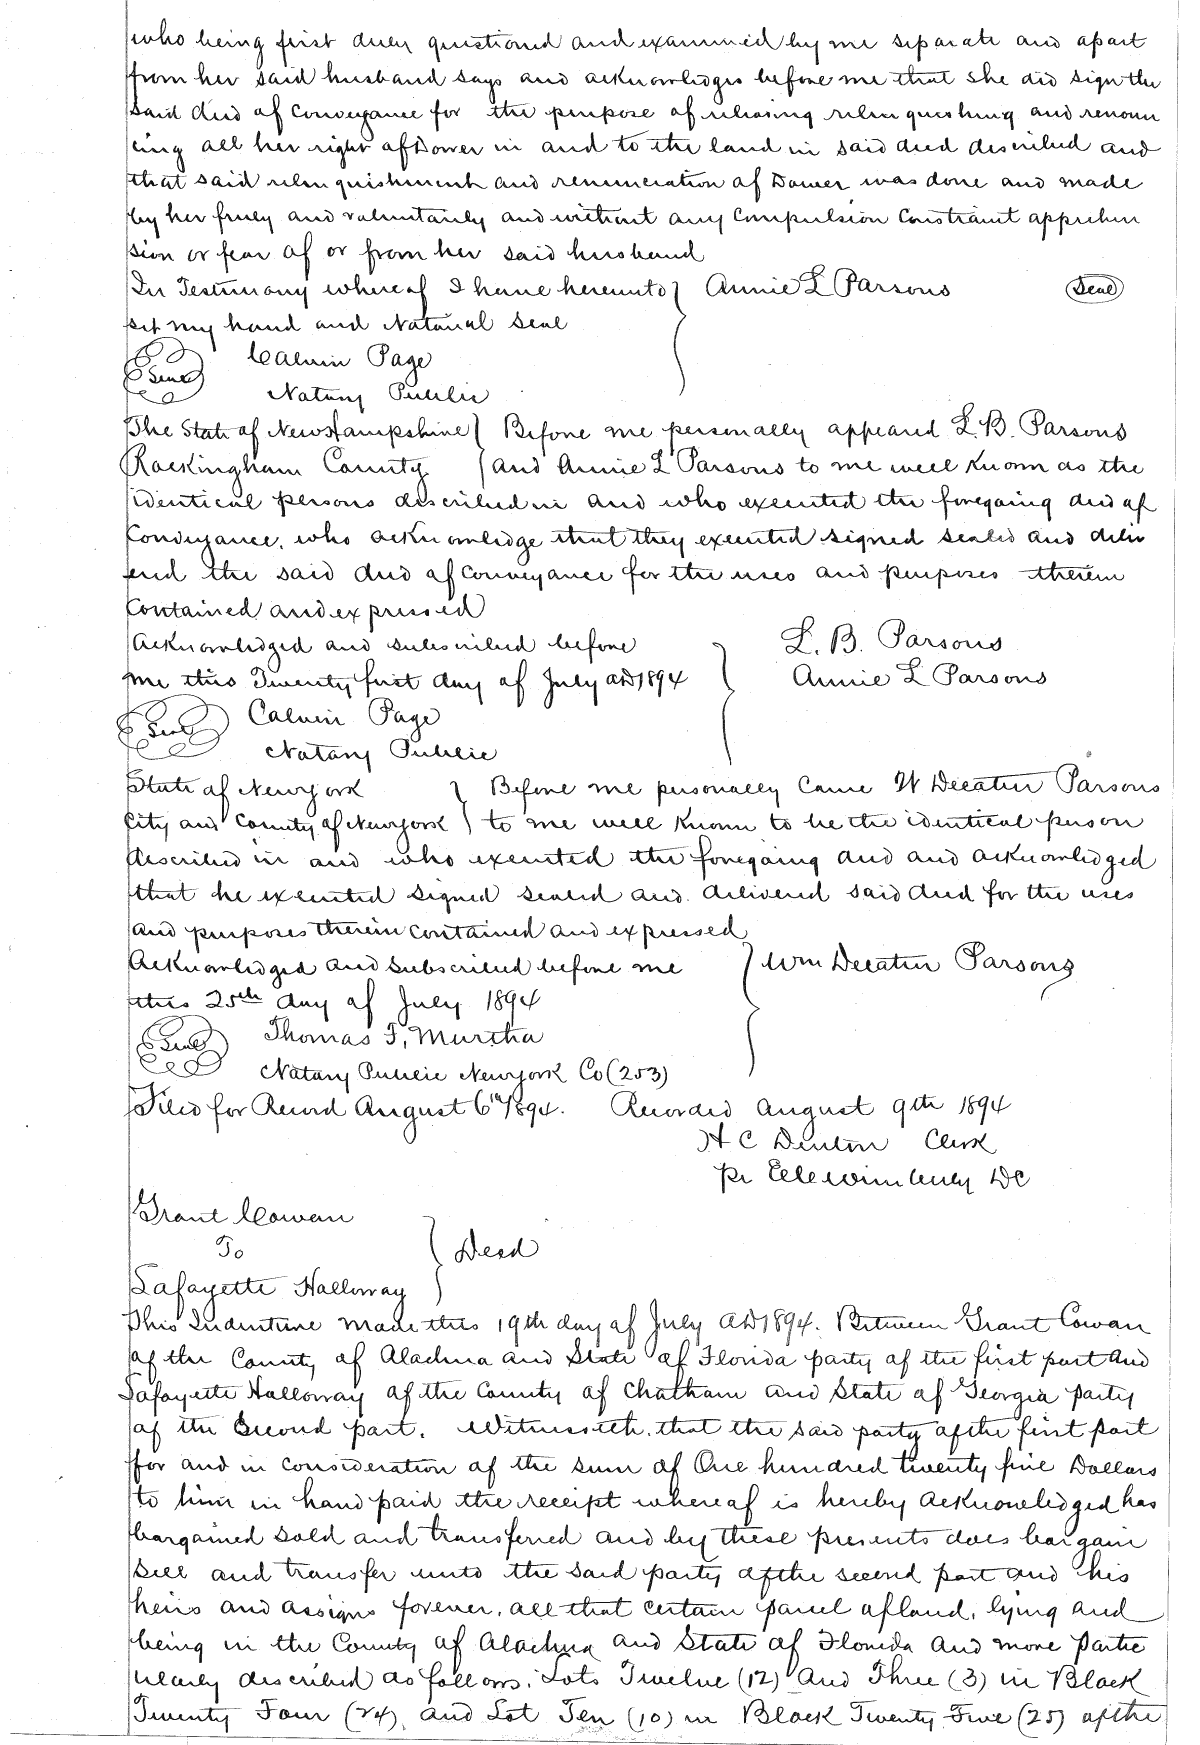 who being first duly questioned and examined by me separate and apart
from her said husband says and acknowledges before me that she did sign the
said deed of conveyance for the purpose of releasing relinquishing and renoun
cing all her right of Dower in and to the land in said deed described and
that said relinquishment and renunciation of Dower was done and made
by her freely and voluntarily and without any Compulsion Constraint apprehen
sion or fear of or from her said husband
In Testimony whereof I have hereunto } Annie L Parsons Seal
set my hand and Notarial Seal
Seal Calvin Page
Notary Public
The State of New Hampshire { Before me personally appeared L. B. Parsons
Rockingham County { and Annie L Parsons to me well known as the
identical persons described in and who executed the foregoing deed of
Conveyance, who acknowledge that they executed signed sealed and deliv
ered the said deed of conveyance for the uses and purposes therein
Contained and expressed
Acknowledged and subscribed before } L. B. Parsons
me this Twenty first day of July AD 1894 Annie L Parsons
Seal Calvin Page
Notary Public
State of New York } Before me personally Came W Decatur Parsons
City and County of New York } to me well known to be the identical person
described in and who executed the foregoing deed and acknowledged
that he executed signed sealed and delivered said deed for the uses
and purposes therein contained and expressed
Acknowledged and subscribed before me } Wm Decatur Parsons
this 25th day of July 1894
Seal Thomas F, Murtha
Notary Public New York Co (253)
Filed for Record August 6th 1894. Recorded August 9th 1894
H C Denton Clerk
pr DC
Grant Cowan
To } Deed
Lafayette Halloway
This Indenture made this 19th day of July AD 1894. Between Grant Cowan
of the County of Alachua and State of Florida party of the first part and
Lafayette Halloway of the County of Chatham and State of Georgia party
of the Second part. Witnesseth, that the said party of the first part
for and in consideration of the sum of One hundred twenty five Dollars
to him in hand paid the receipt whereof is hereby acknowledged has
bargained sold and transferred and by these presents does bargain
sell and transfer unto the said party of the second part and his
heirs and assigns forever, all that certain parcel of land, lying and
being in the County of Alachua and State of Florida and more partic
ularly described as follows: Lots Twelve (12) and Three (3) in Block
Twenty Four (24), and Lot Ten (10) in Block Twenty Five (25) of the